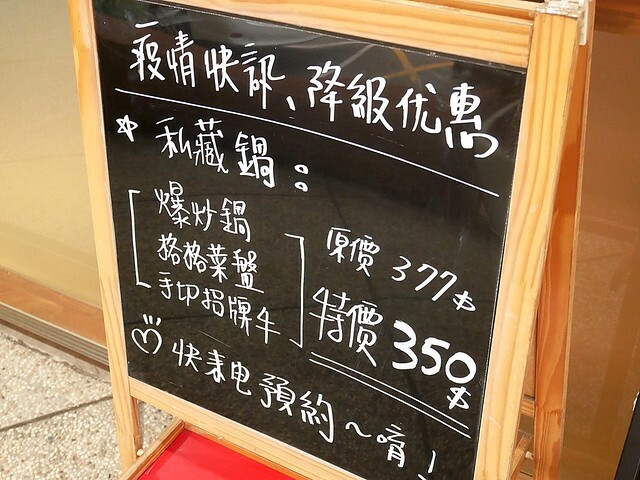 疫情快訊、降級优惠
* 私藏鍋:
爆炒鍋
格格菜盤
手切招牌牛
原價 377$
特價 350$
快来电預約～唷!